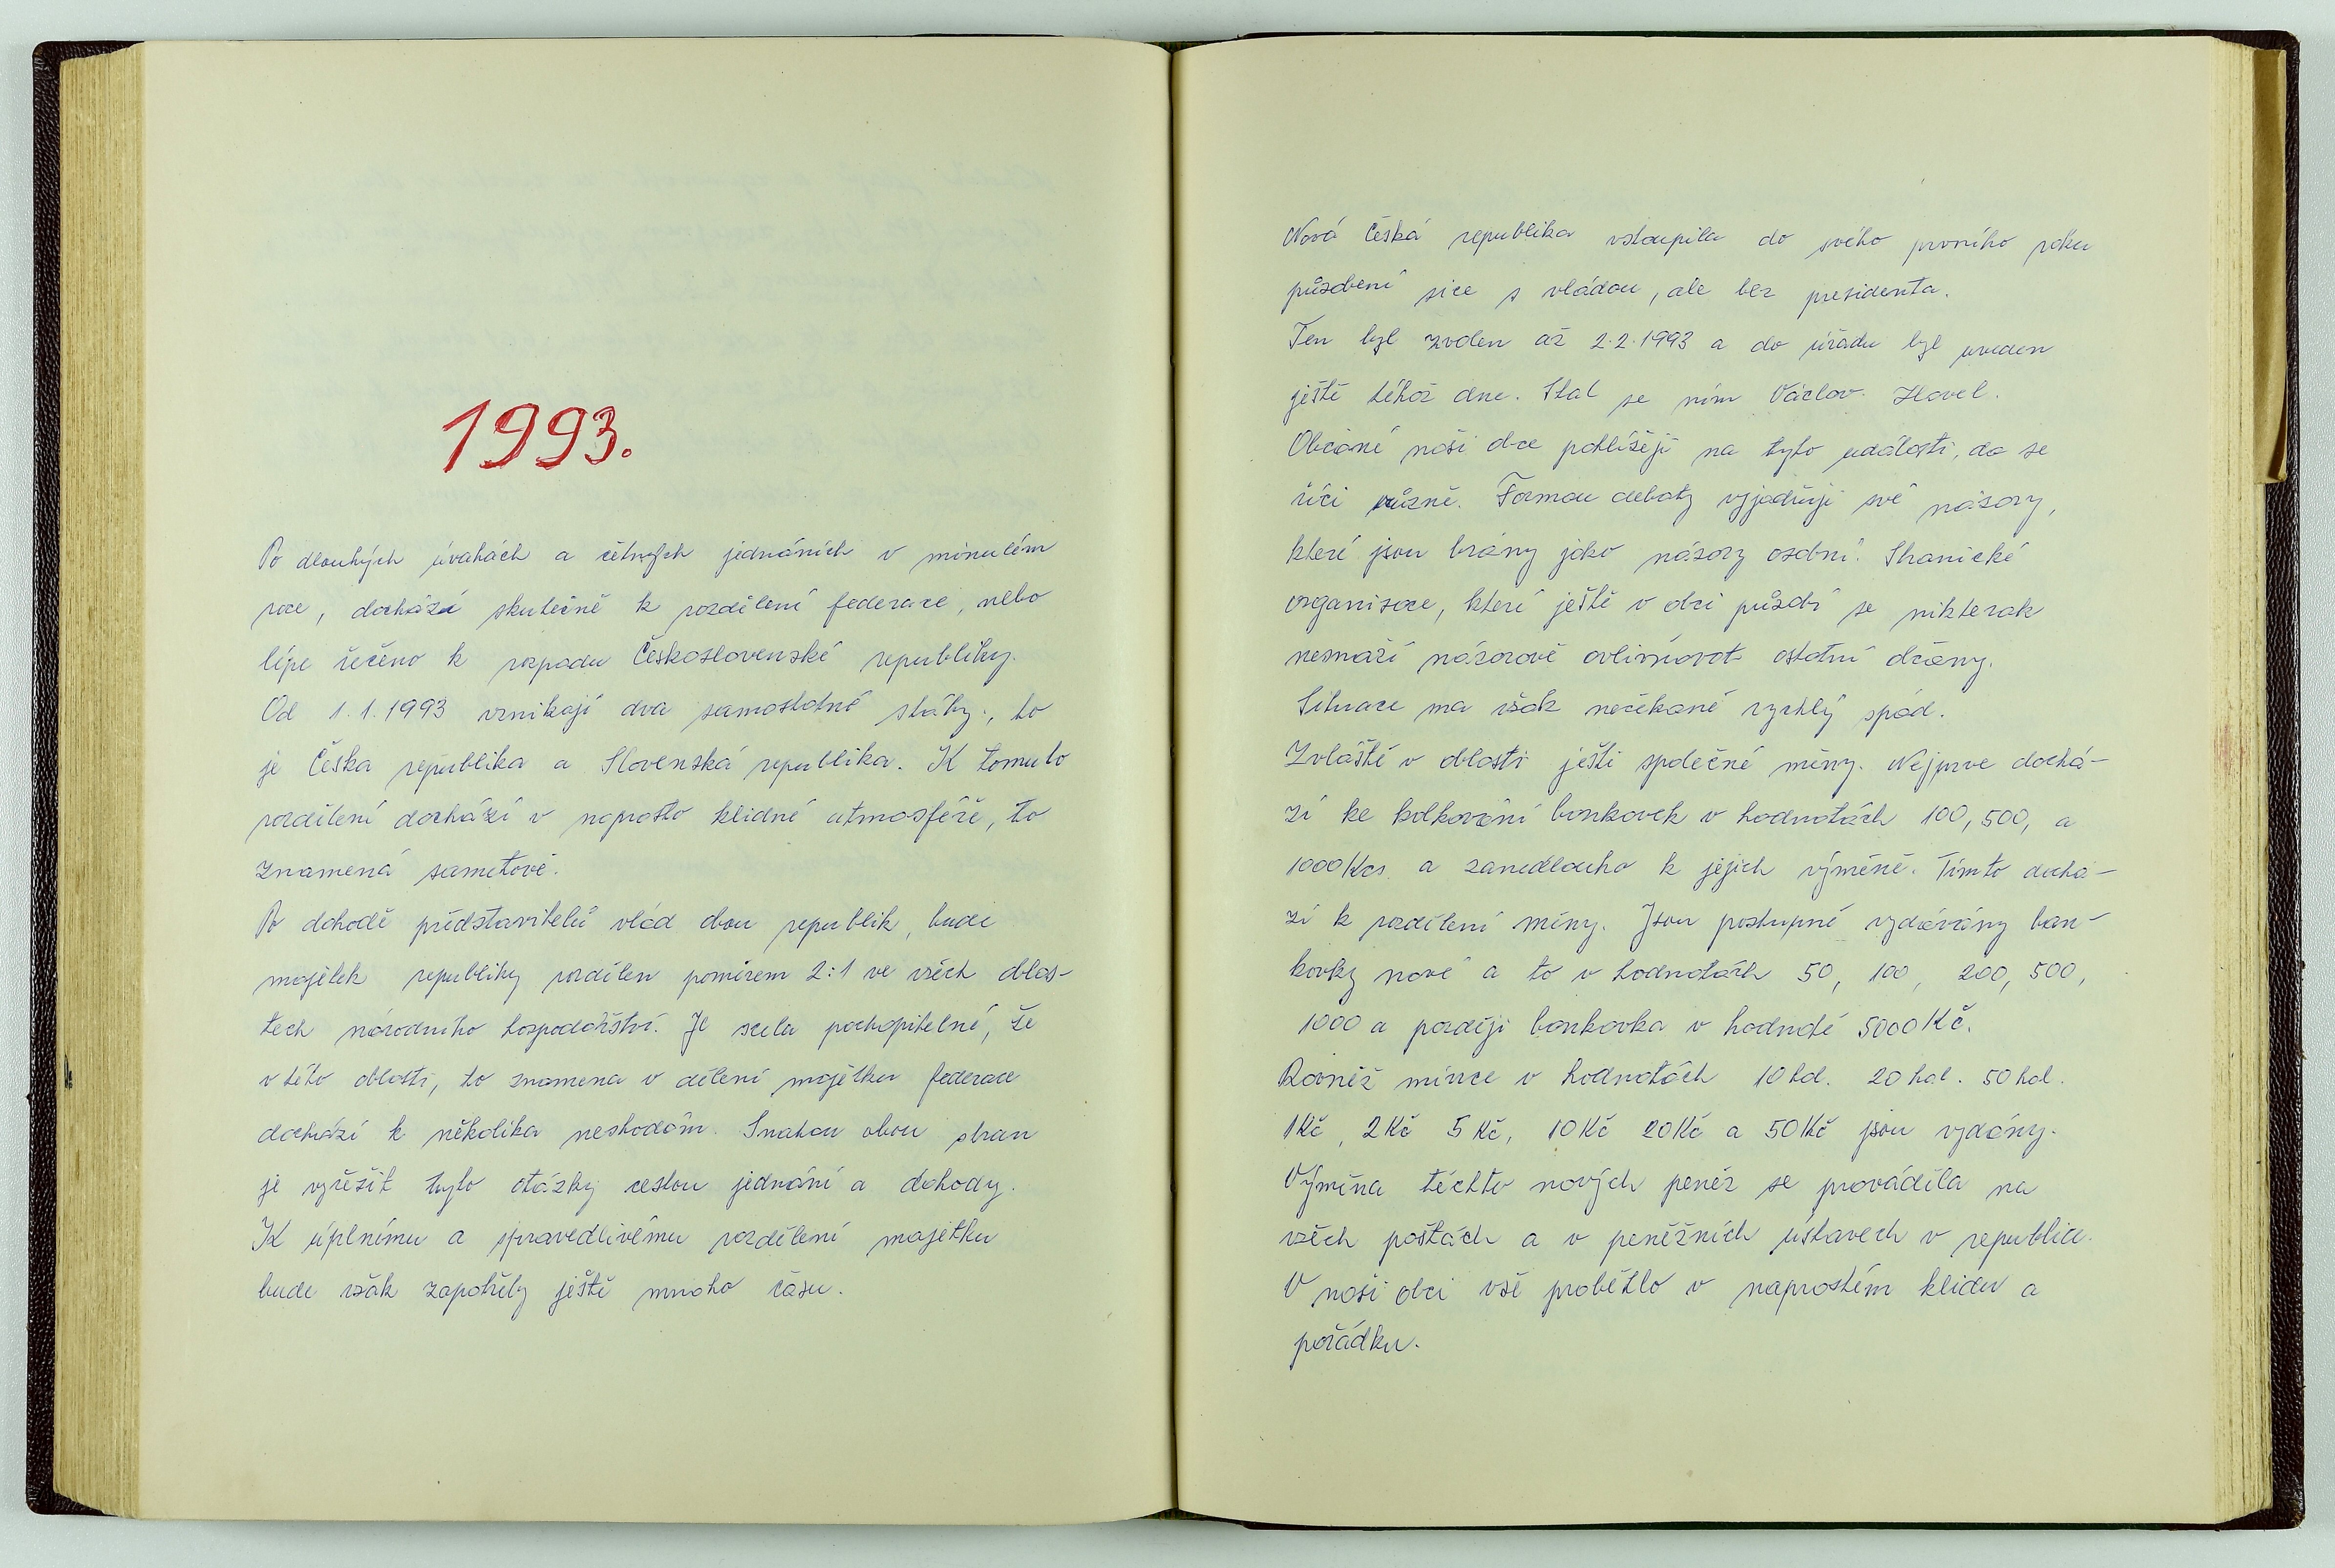 1993.
Po dlouhých úvahách a četných jednáních v minulém
roce, dochází skutečně k rozdělení federace, nebo
lépe řečeno k rozpadu Československé republiky.
Od 1.1.1993 vznikají dva samostatné státy., to
je Česka republika a Slovenská republika. K tomuto
rozdělení dochází v naprosto klidné atmosféře, to
znamená sametově.
Po dohodě představitelů vlád obou republik, bude
majetek republiky rozdělen poměrem 2:1 ve všech oblas-
tech národního hospodářství. Je scela pochopitelné, že
v této oblasti, to znamena v dělení majetku federace
dochází k několika neshodám. Snahou obou stran
je vyřešit tyto otázky cestou jednání a dohody.
K úplnému a spravedlivému rozdělení majetku
bude však zapotřeby ještě mnoho času.
Nová Česká republika vstoupila do svého prvního roku
působení sice s vládou, ale bez presidenta.
Ten byl zvolen až 2.2.1993 a do úřadu byl uveden
ještě téhož dne. Stal se ním Václav Havel.
Občané naši obce pohlížejí na tyto události, da se
říci různě. Formou debaty vyjadřují své názory,
které jsou brány jako názory osobní. Stranické
organisace, které ještě v obci působí se nikterak
nesnaží názorově ovlivňovat ostatní občany.
Situace ma však nečekaně rychlý spád.
Zvláště v oblasti ještě společné měny. Nejprve dochá-
zí ke kolkování bankovek v hodnotách 100, 500, a
1000 Kčs. a zanedlouho k jejich výměně. Tímto dochá-
zí k rozdělení měny. Jsou postupně vydávány ban-
kovky nové a to v hodnotách 50, 100, 200, 500,
1000 a později bankovka v hodnotě 5000 Kč.
Rovněž mince v hodnotách 10 hal. 20 hal. 50 hal.
1 Kč, 2 Kč 5 Kč, 10 Kč 20 Kč a 50 Kč jsou vydány.
Výměna těchto nových peněz se prováděla na
všech poštách a v peněžních ústavech v republice.
V naši obci vše proběhlo v naprostém klidu a
pořádku.